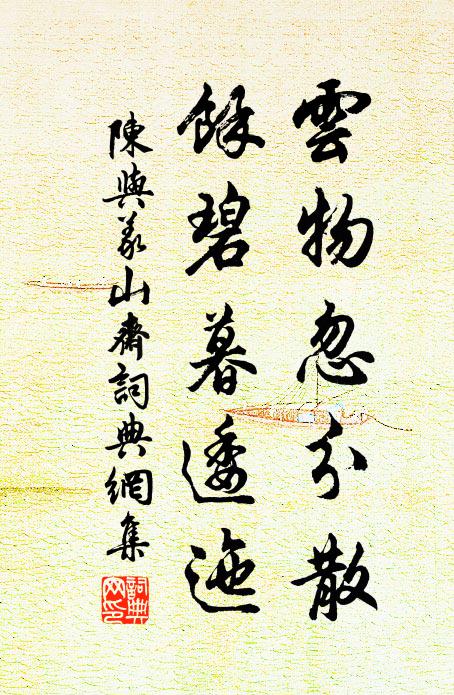 雲物忽分散
餘碧暮逶迤
陳與義山齋詞典網集
詞典網印